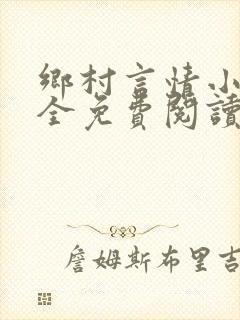 鄉村言情小
全免費閱讀
詹姆斯布里吉